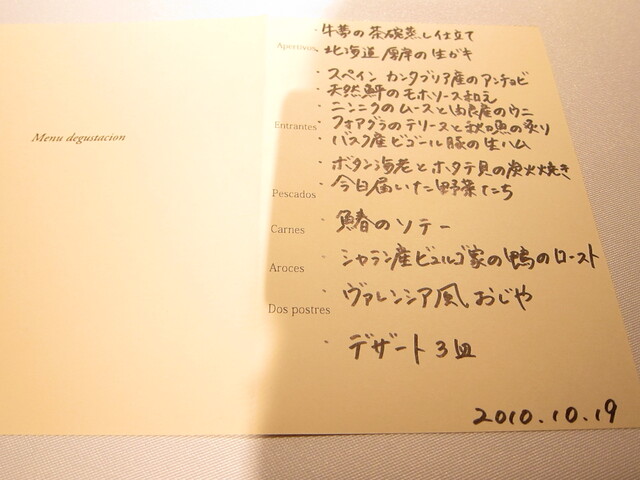 Menu degustacion
・牛蒡の茶碗蒸し仕立て
Aperitivos
・北海道厚岸の生ガキ
・スペイン カンタブリア産のアンチョビ
・天然鮃のモホソース和え
・ニンニクのムースと由良産のウニ
Entrantes
・フォアグラのテリーヌと秋刀魚の炙り
・バスク産ビゴール豚の生ハム
・ボタン海老とホタテ貝の炭火焼き
・今日届いた野菜たち
Pescados
・鰆のソテー
Carnes
・シャラン産ビュルゴ家の鴨のロースト
Aroces
・ヴァレンシア風おじや
Dos postres
・デザート3皿
2010.10.19